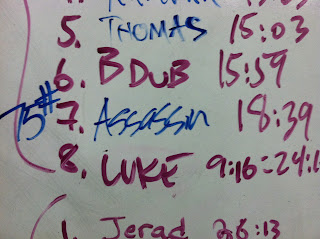 5. THOMAS 15:03
6. B DUB 15:59
75# 7. Assassin 18:39
8. LUKE 9:16=24:1
1. Jerad 26:13